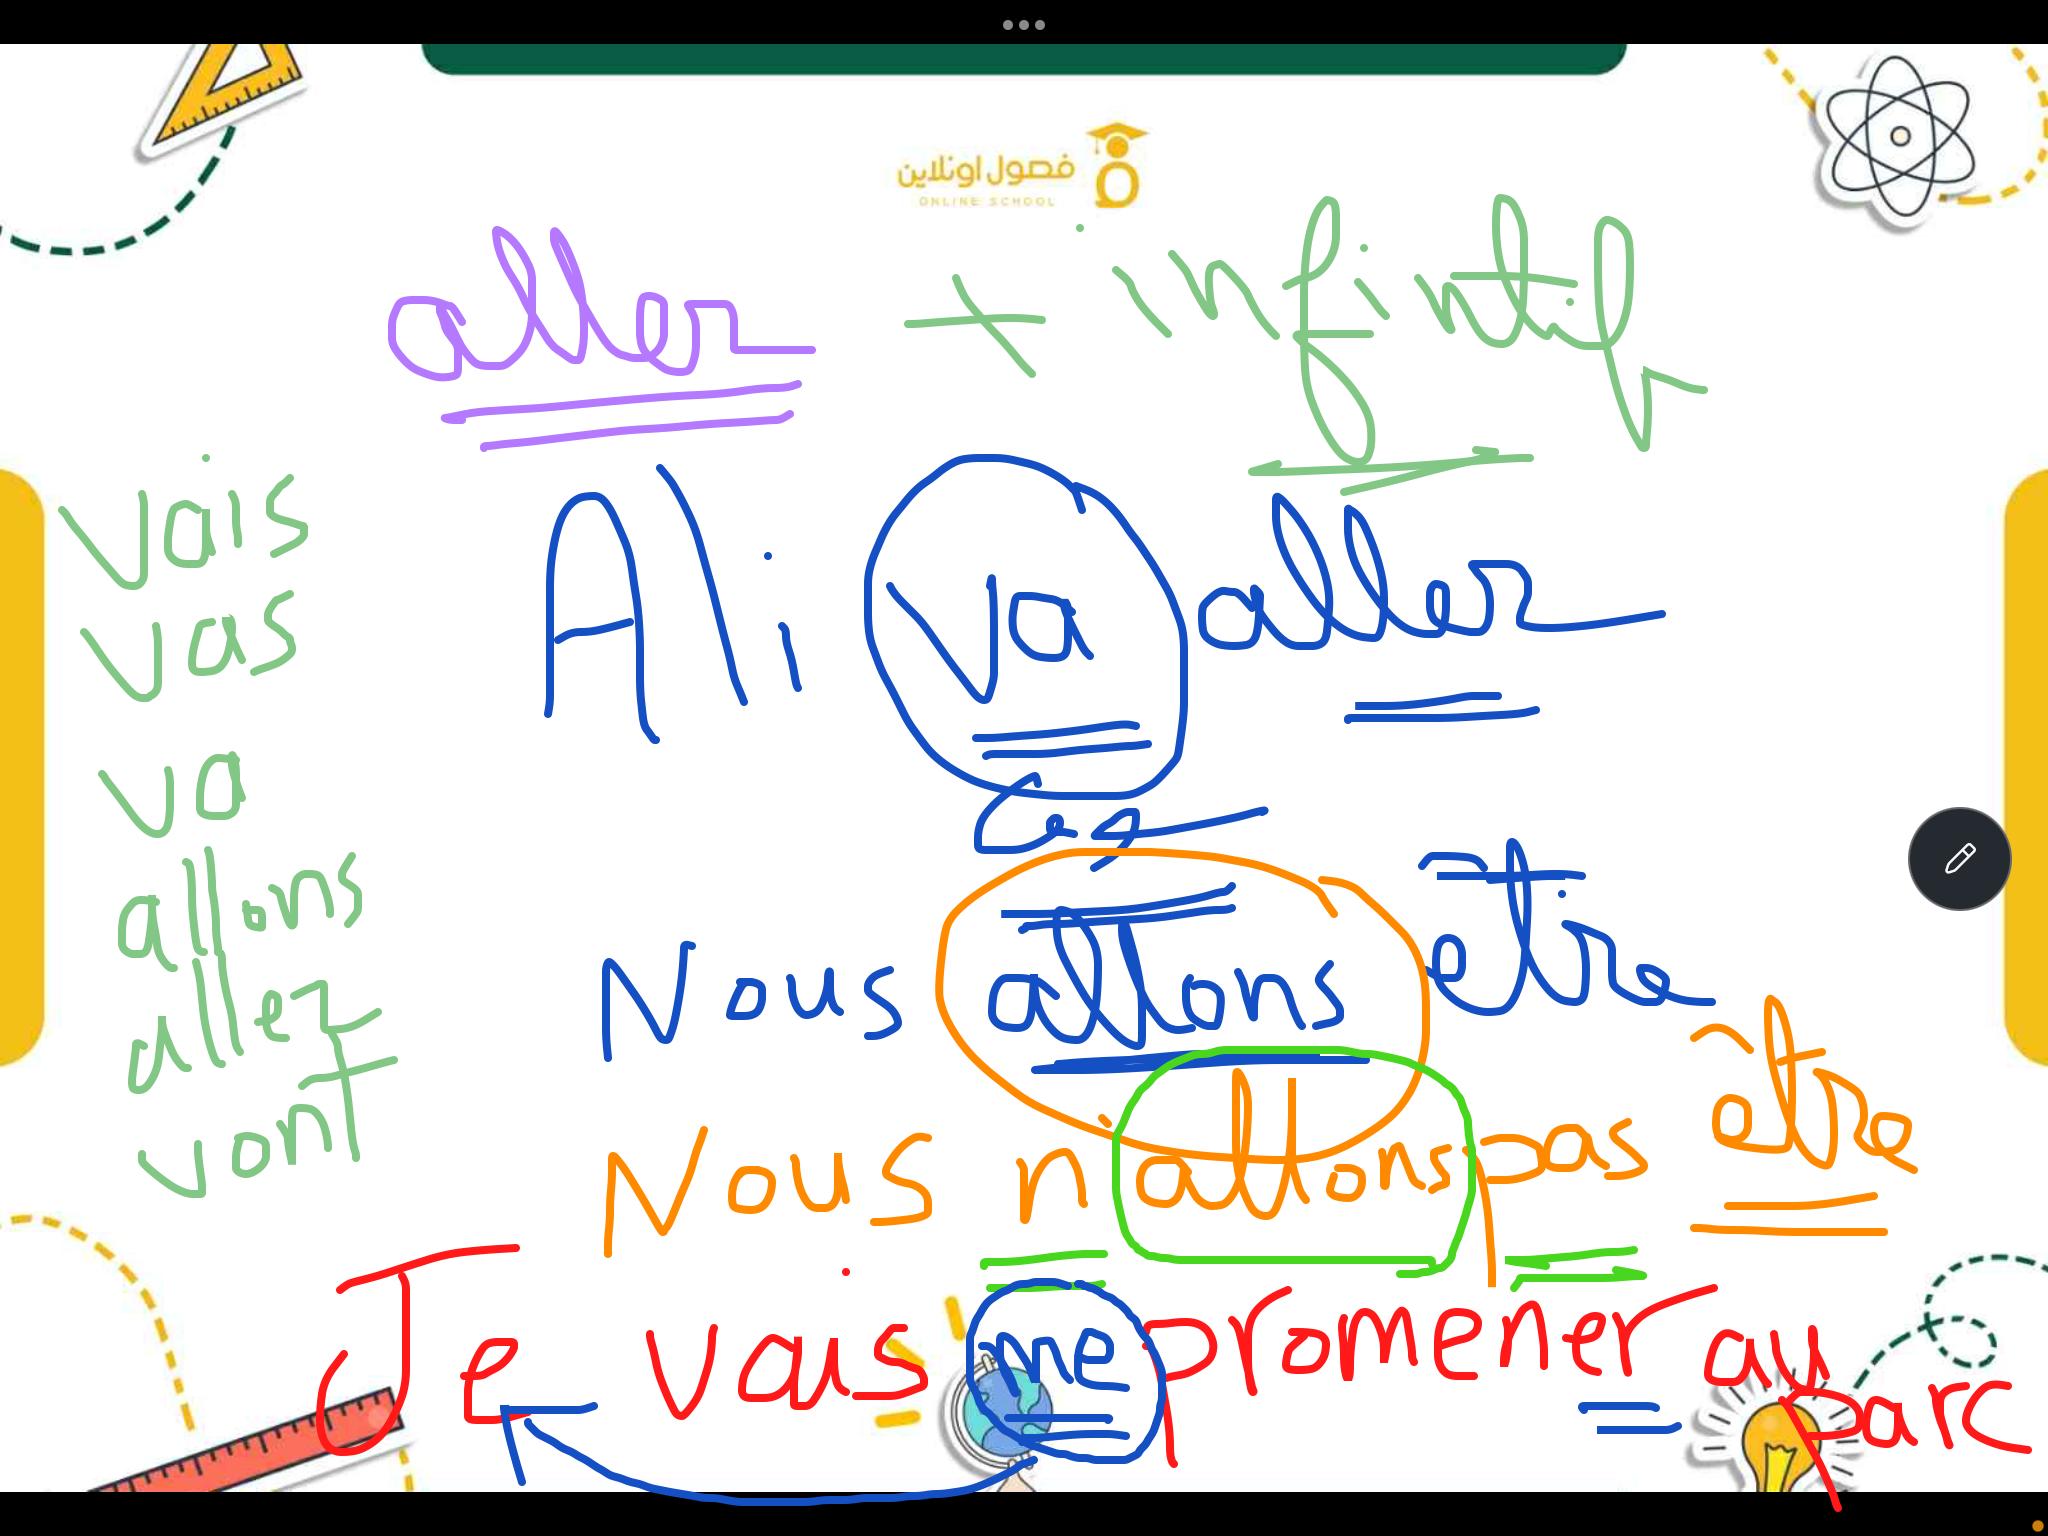 فصول اونلاين
ONLINE SCHOOL
aller + infintif
vais
vas
va
allons
allez
vont
Ali va aller
Nous allons être
Nous n'allons pas être
Je vais me promener au parc